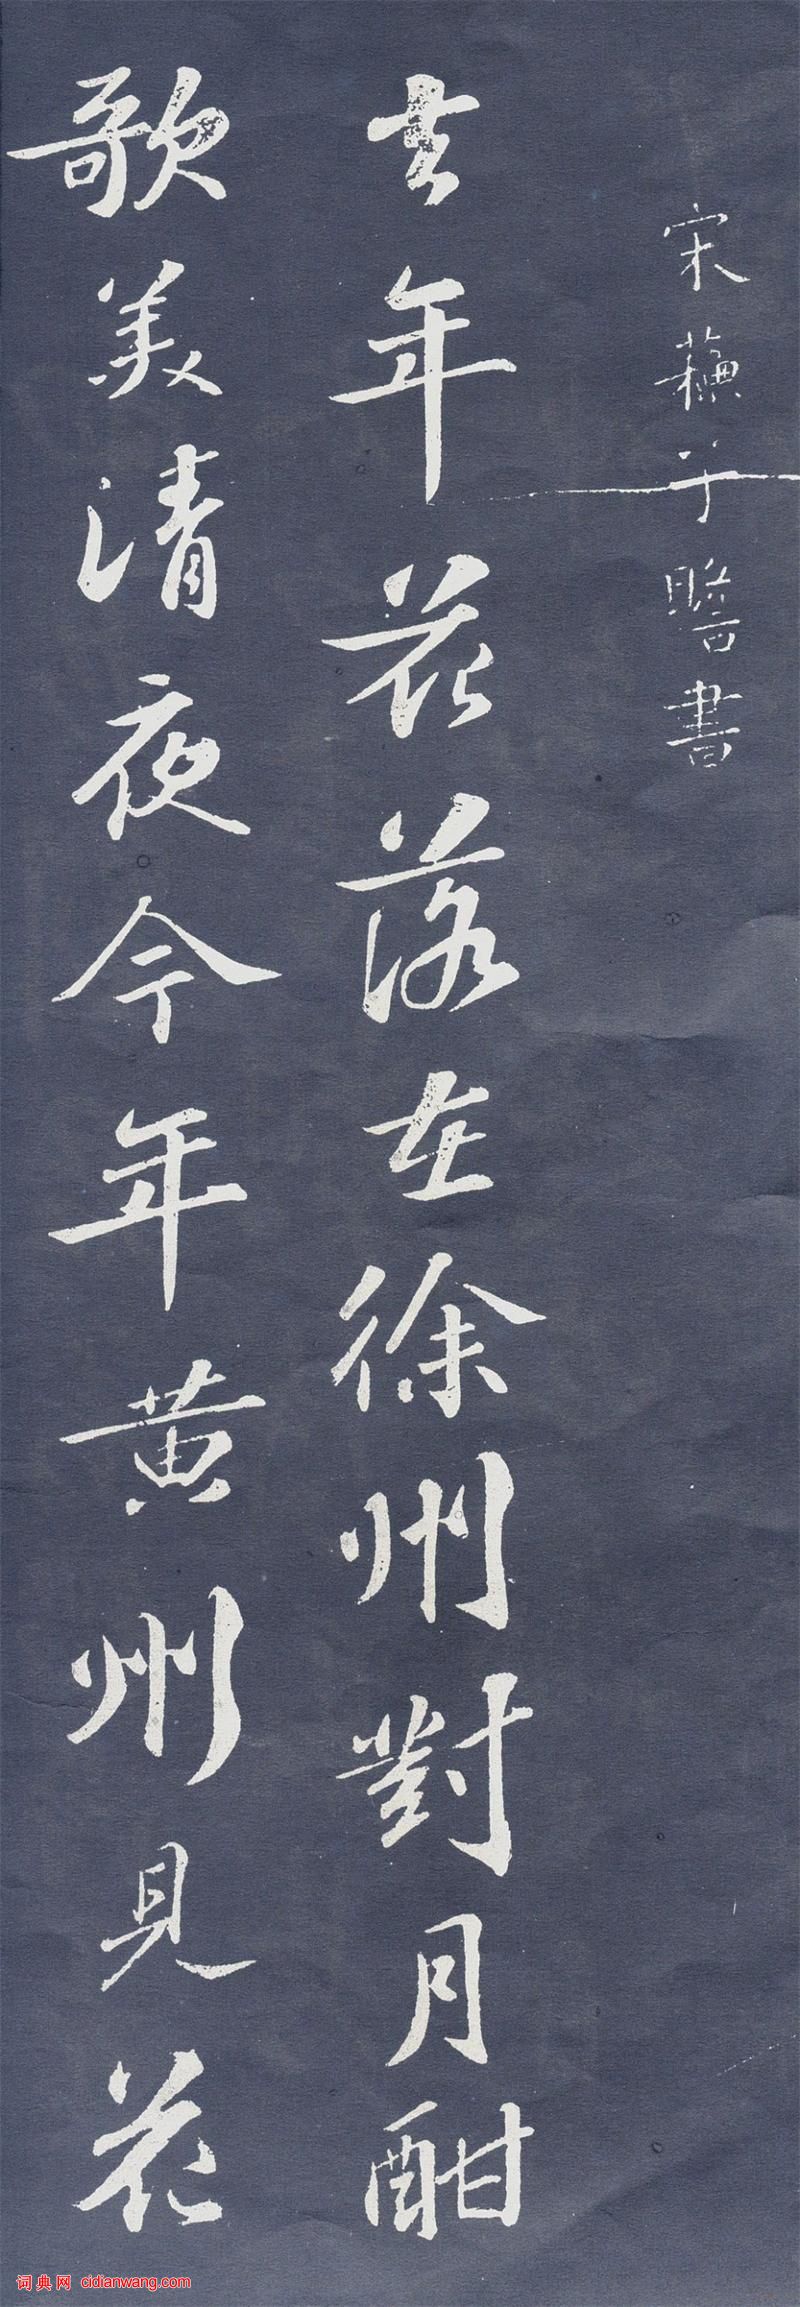 宋蘓子瞻書
去年花落在徐州對月酣
歌美清夜今年黄州見花
词典网 cidianwang.com